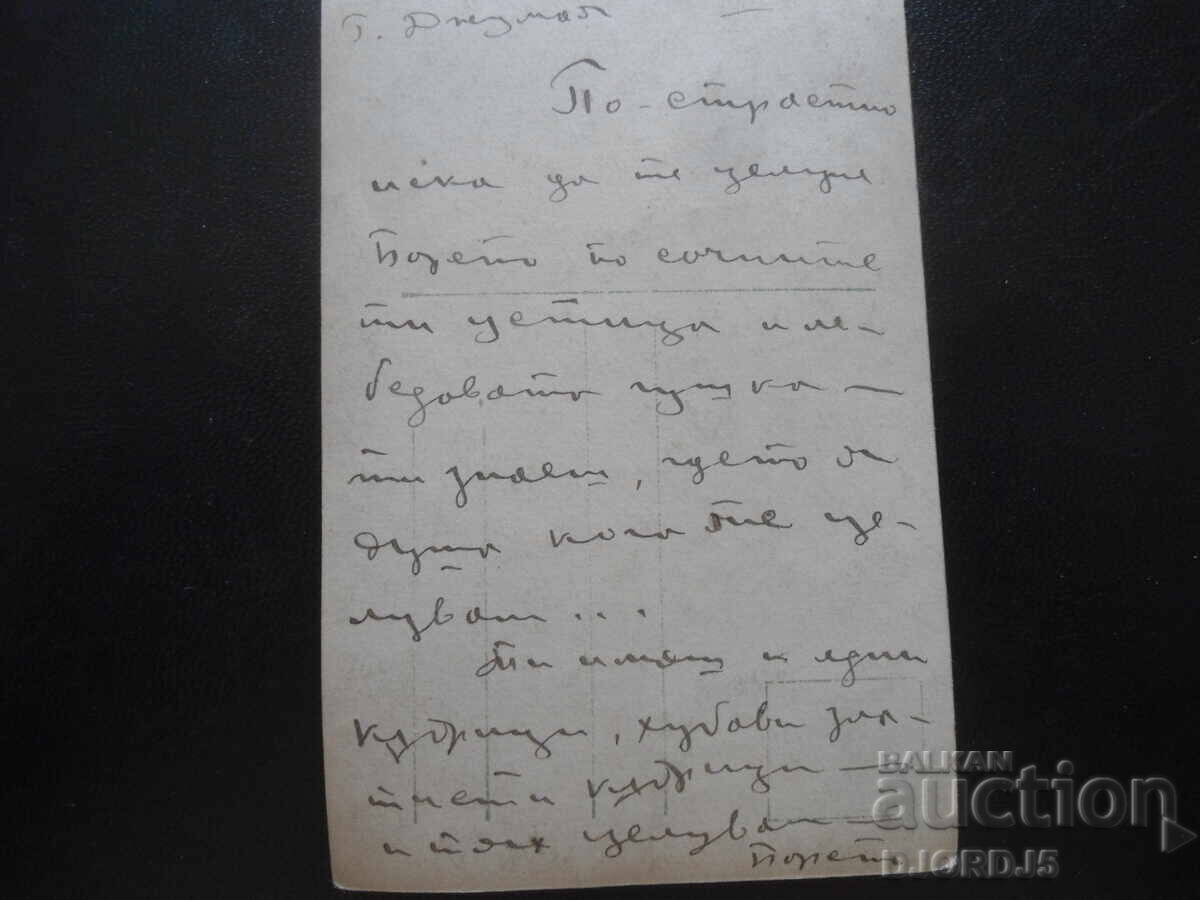 Г. Джумая —
По-страстно
иска да те целуне
Борето по сочните
ти устица и ле-
бедовата гушка —
ти знаеш, дето за
душа кога те це-
лувам...
Ти имаш и едни
къдрици, хубави зла-
тисти къдрици —
и тях целувам —
Борето
BALKAN
auction
DJORDJ5